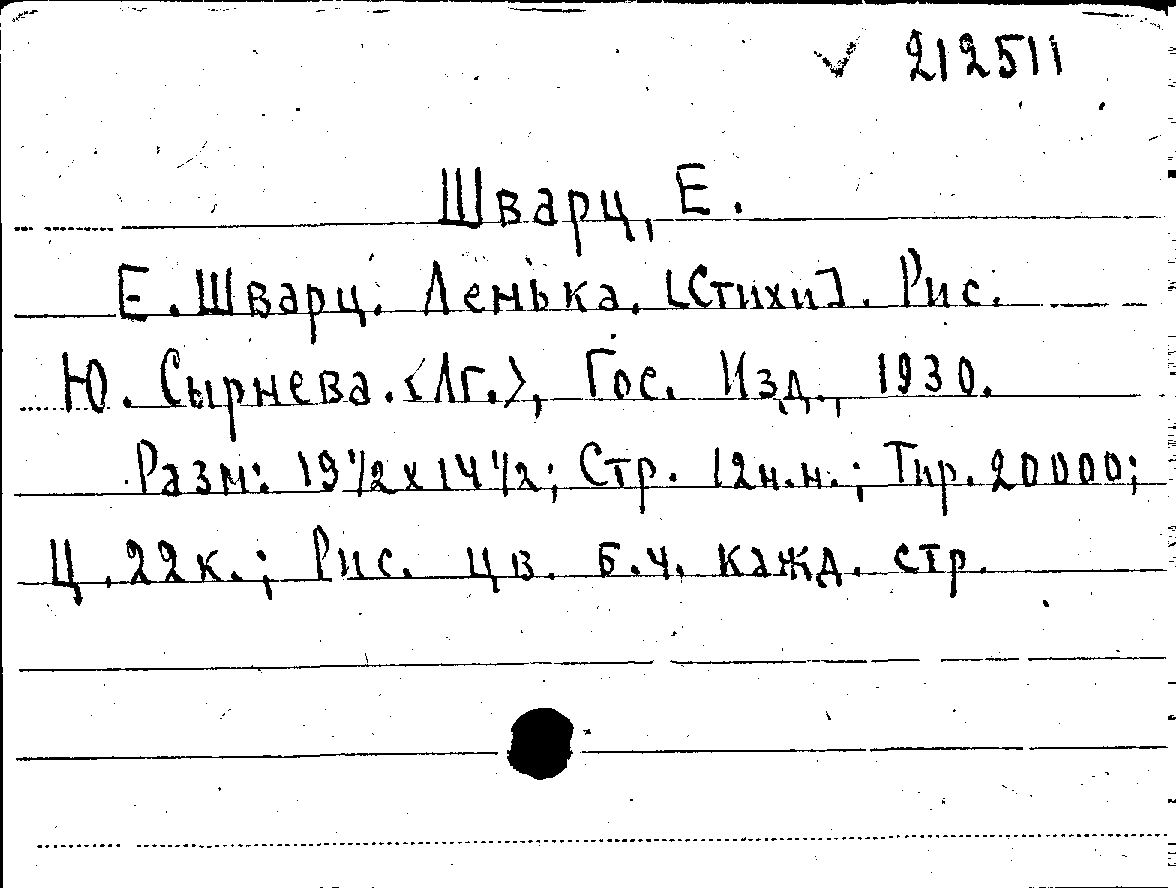 ✓ 212511
Шварц, Е.
Е. Шварц. Ленька. [Стихи]. Рис.
Ю. Сырнева. <Лг.>, Гос. Изд., 1930.
Разм: 19 1/2 x 14 1/2; Стр. 12 н.н.; Тир. 20000;
Ц. 22 к.; Рис. цв. б.ч. кажд. стр.